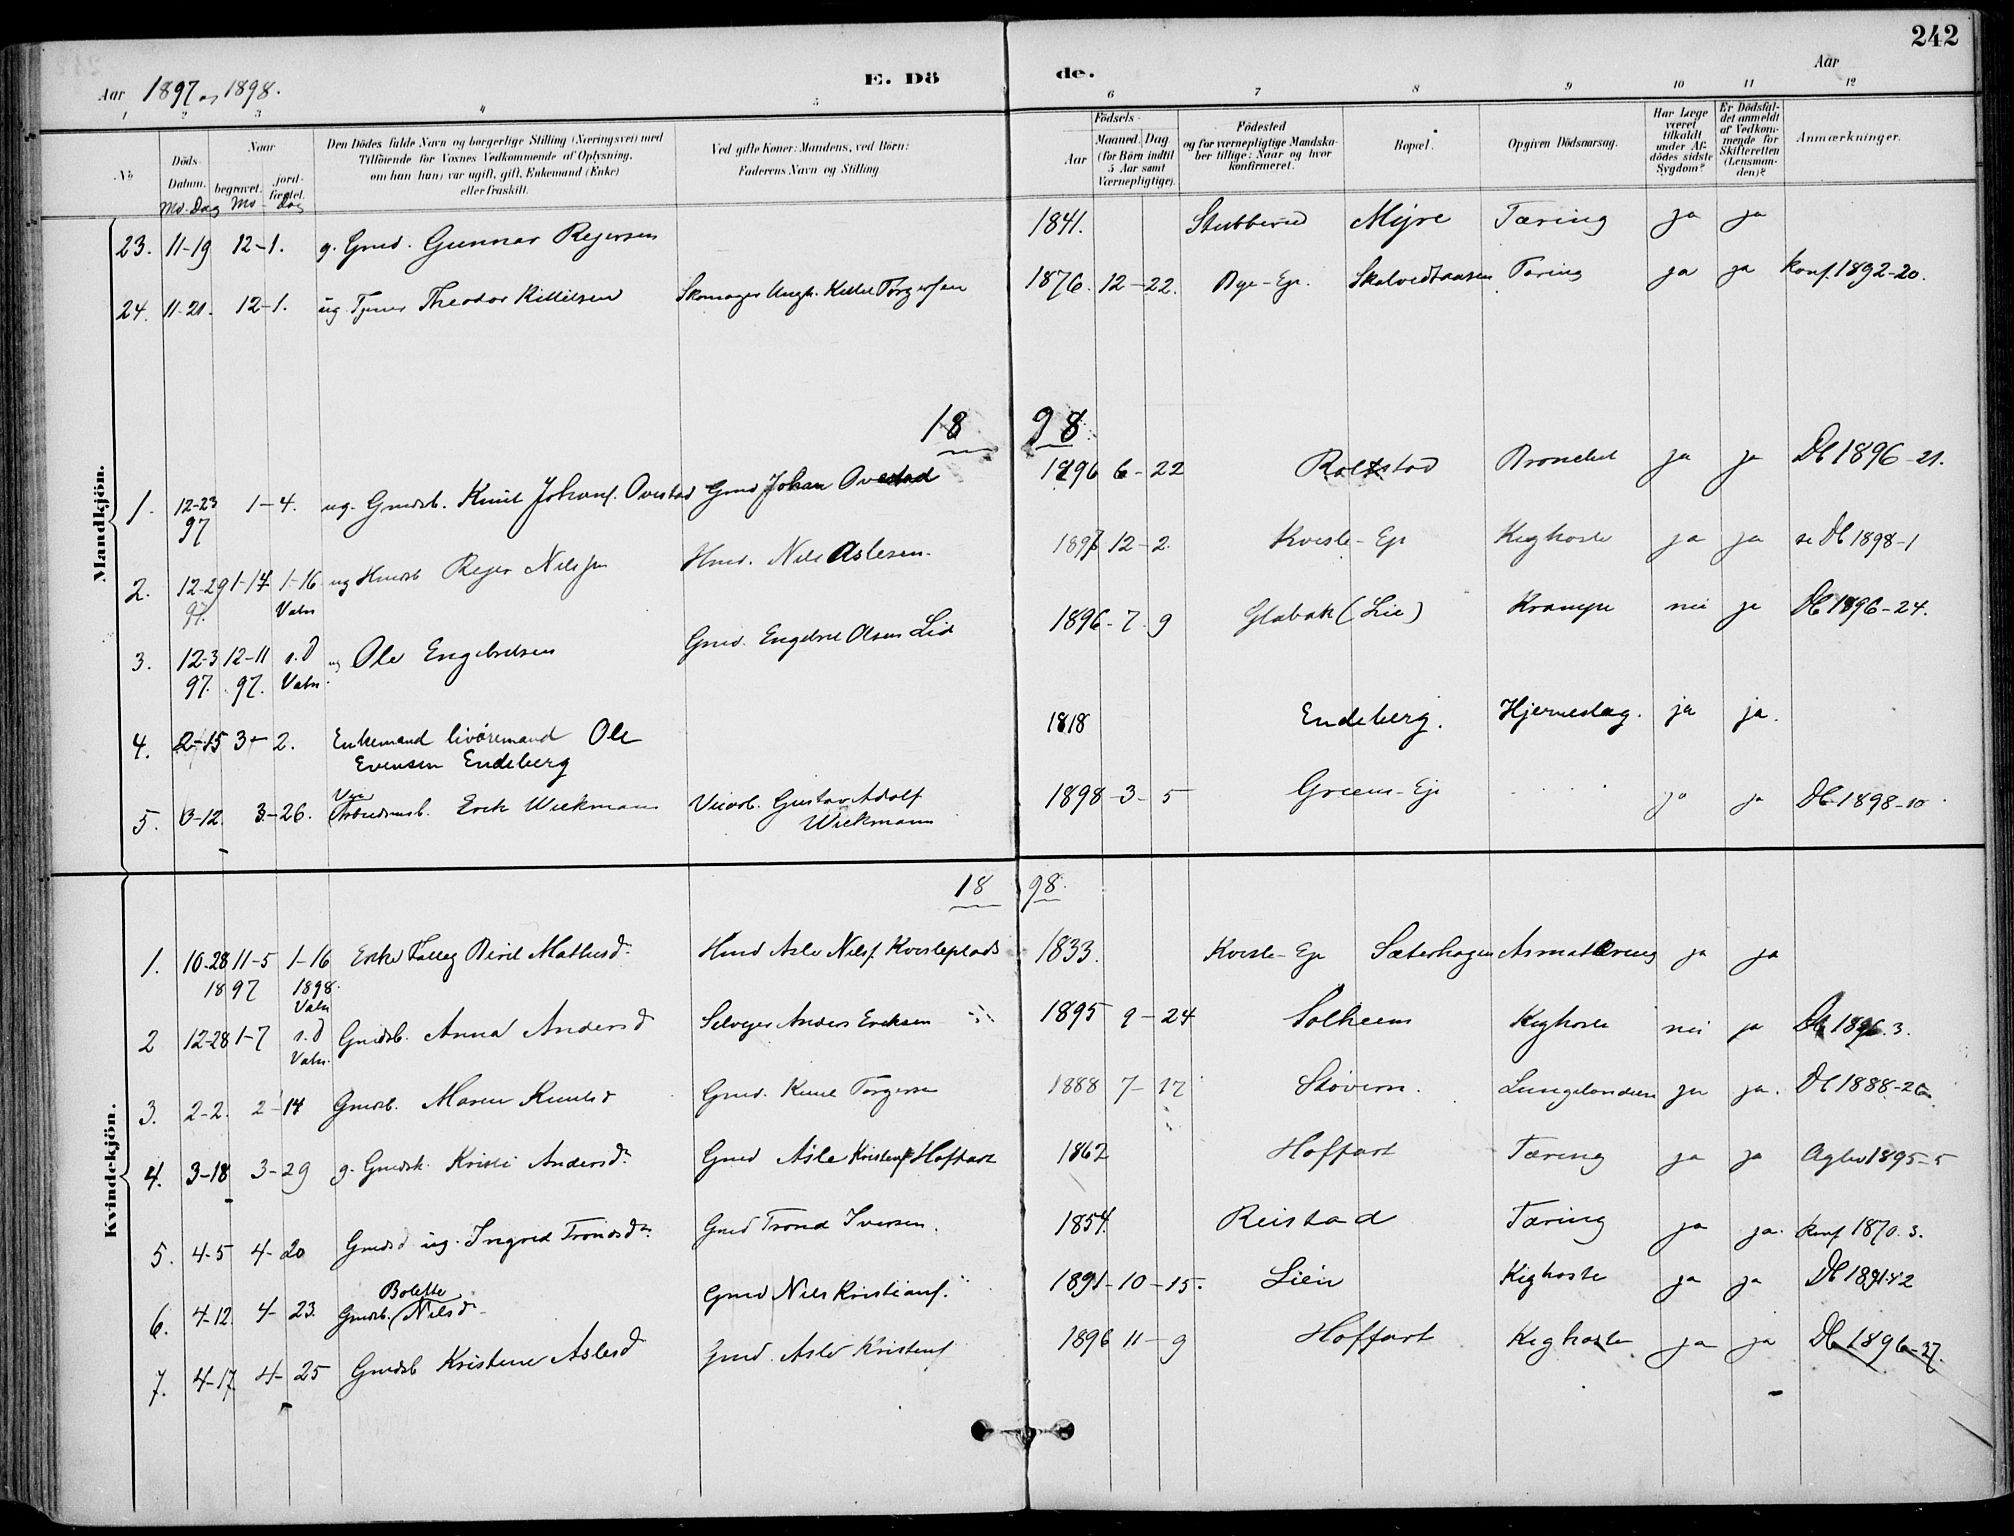 242
Aar 1897 og 1898.
E. Dö de.
Aar
1 2 3 4 5 6 7 8 9 10 11 12
No
Döds-Datum.
Naar
begravet. jord-fæstet.
Mo. Dag Mo - dag
Den Dödes fulde Navn og borgerlige Stilling (Næringsvei) med
Tilföiende for Voxnes Vedkommende af Oplysning,
om han (hun) var ugift, gift, Enkemand (Enke)
eller fraskilt.
Ved gifte Koner: Mandens, ved Börn:
Faderens Navn og Stilling
Födsels-
Aar
Maaned. Dag
(for Börn indtil
5 Aar samt
Værnepligtige).
Födested
og for værnepligtige Mandska-
ber tillige: Naar og hvor
konfirmeret.
Bopæl.
Opgiven Dödsaarsag.
Har Læge
været
tilkaldt
under Af-
dödes sidste
Sygdom?
Er Dödsfal-
det anmeldt
af Vedkom-
mende for
Skifteretten
(Lensman-
den)?
Anmærkninger.
Mandkjön.
23. 11-19 12-1. g. Gmd. Gunnar Reiersen 1841. Stubberud Myre Tæring ja ja
24. 11-21. 12-1. ug. Tjener Theodor Killilsen Skomager Ungk. Kittel Torgersen 1876. 12-22. Bye-Eje. Skalvedtaasen Tæring ja ja Konf. 1892-20.
18 98
1. 12-23 97 1-4. ug. Gmdsb. Knut Johans. Overstad Gmd Johan Overstad 1896 6-22 Rolfstad Bronchit ja ja Db 1896-21.
2. 12-29 97. 1-14 1-16 Vatn ug Hmdsb Reier Nilssen Hmd. Nils Aslesen. 1897 12-2. Kvisle-Eje Kighoste ja ja se Db 1898-1
3. 12-3 97. 12-11 97. s.D Vatn. ug Ole Engebretsen Gmd. Engebret Olsen Lid 1896-7-9 Glabak (Lie) Krampe nei ja Db 1896-24.
4. 2-15 3-2. Enkemand livöremand Ole
Evensen Endeberg 1818 Endeberg. Hjerneslag. ja ja.
5. 3-12. 3-26. Arbeidmsb. Erik Wiekmann Gustav Adolf
Wiekmann 1898-3-5 Green-Eje ja ja Db 1898-10
Kvindekjön.
18 98.
1. 10-28 1897 11-5 1-16 1898. Vatn Enke Fattig Beret Mathisd. Hmd Asle Nilss. Kvisleplads 1833. Kvisle-Eje Sæterhagen Asmatæring ja ja
2 12-28 1-7 s.D Vatn. Gmdsb. Anna Andersd Selveier Anders Eriksen 1895 9-24 Solheim Kighoste nei ja Db 1896 3.
3. 2-2. 2-14 Gmdsb. Maren Knutsd Gmd. Knut Torgersen 1888 7-17 Stövern. ja ja. Db 1888-26
4. 3-18 3-29 g. Gmdsk. Kristi Andersd. Gmd Asle Kristens. Hoffart 1862 Hoffart Tæring ja ja Agtev 1895-5
5. 4-5 4-20 Gmdsd ug. Ingrid Trondsd. Gmd Trond Iversen. 1854. Reistad Tæring ja ja. Konf 1870. 3.
6. 4-12. 4-23. Gmdsb. Bolette Nilsd. Gmd Nils Kristians. 1891-10-15. Lien Kighoste ja ja Db 1891-42
7. 4-17 4-25 Gmdsb Kristine Aslesd Gmd. Asle Kristens 1896 11-9 Hoffart Kighoste ja ja Db 1896-37.